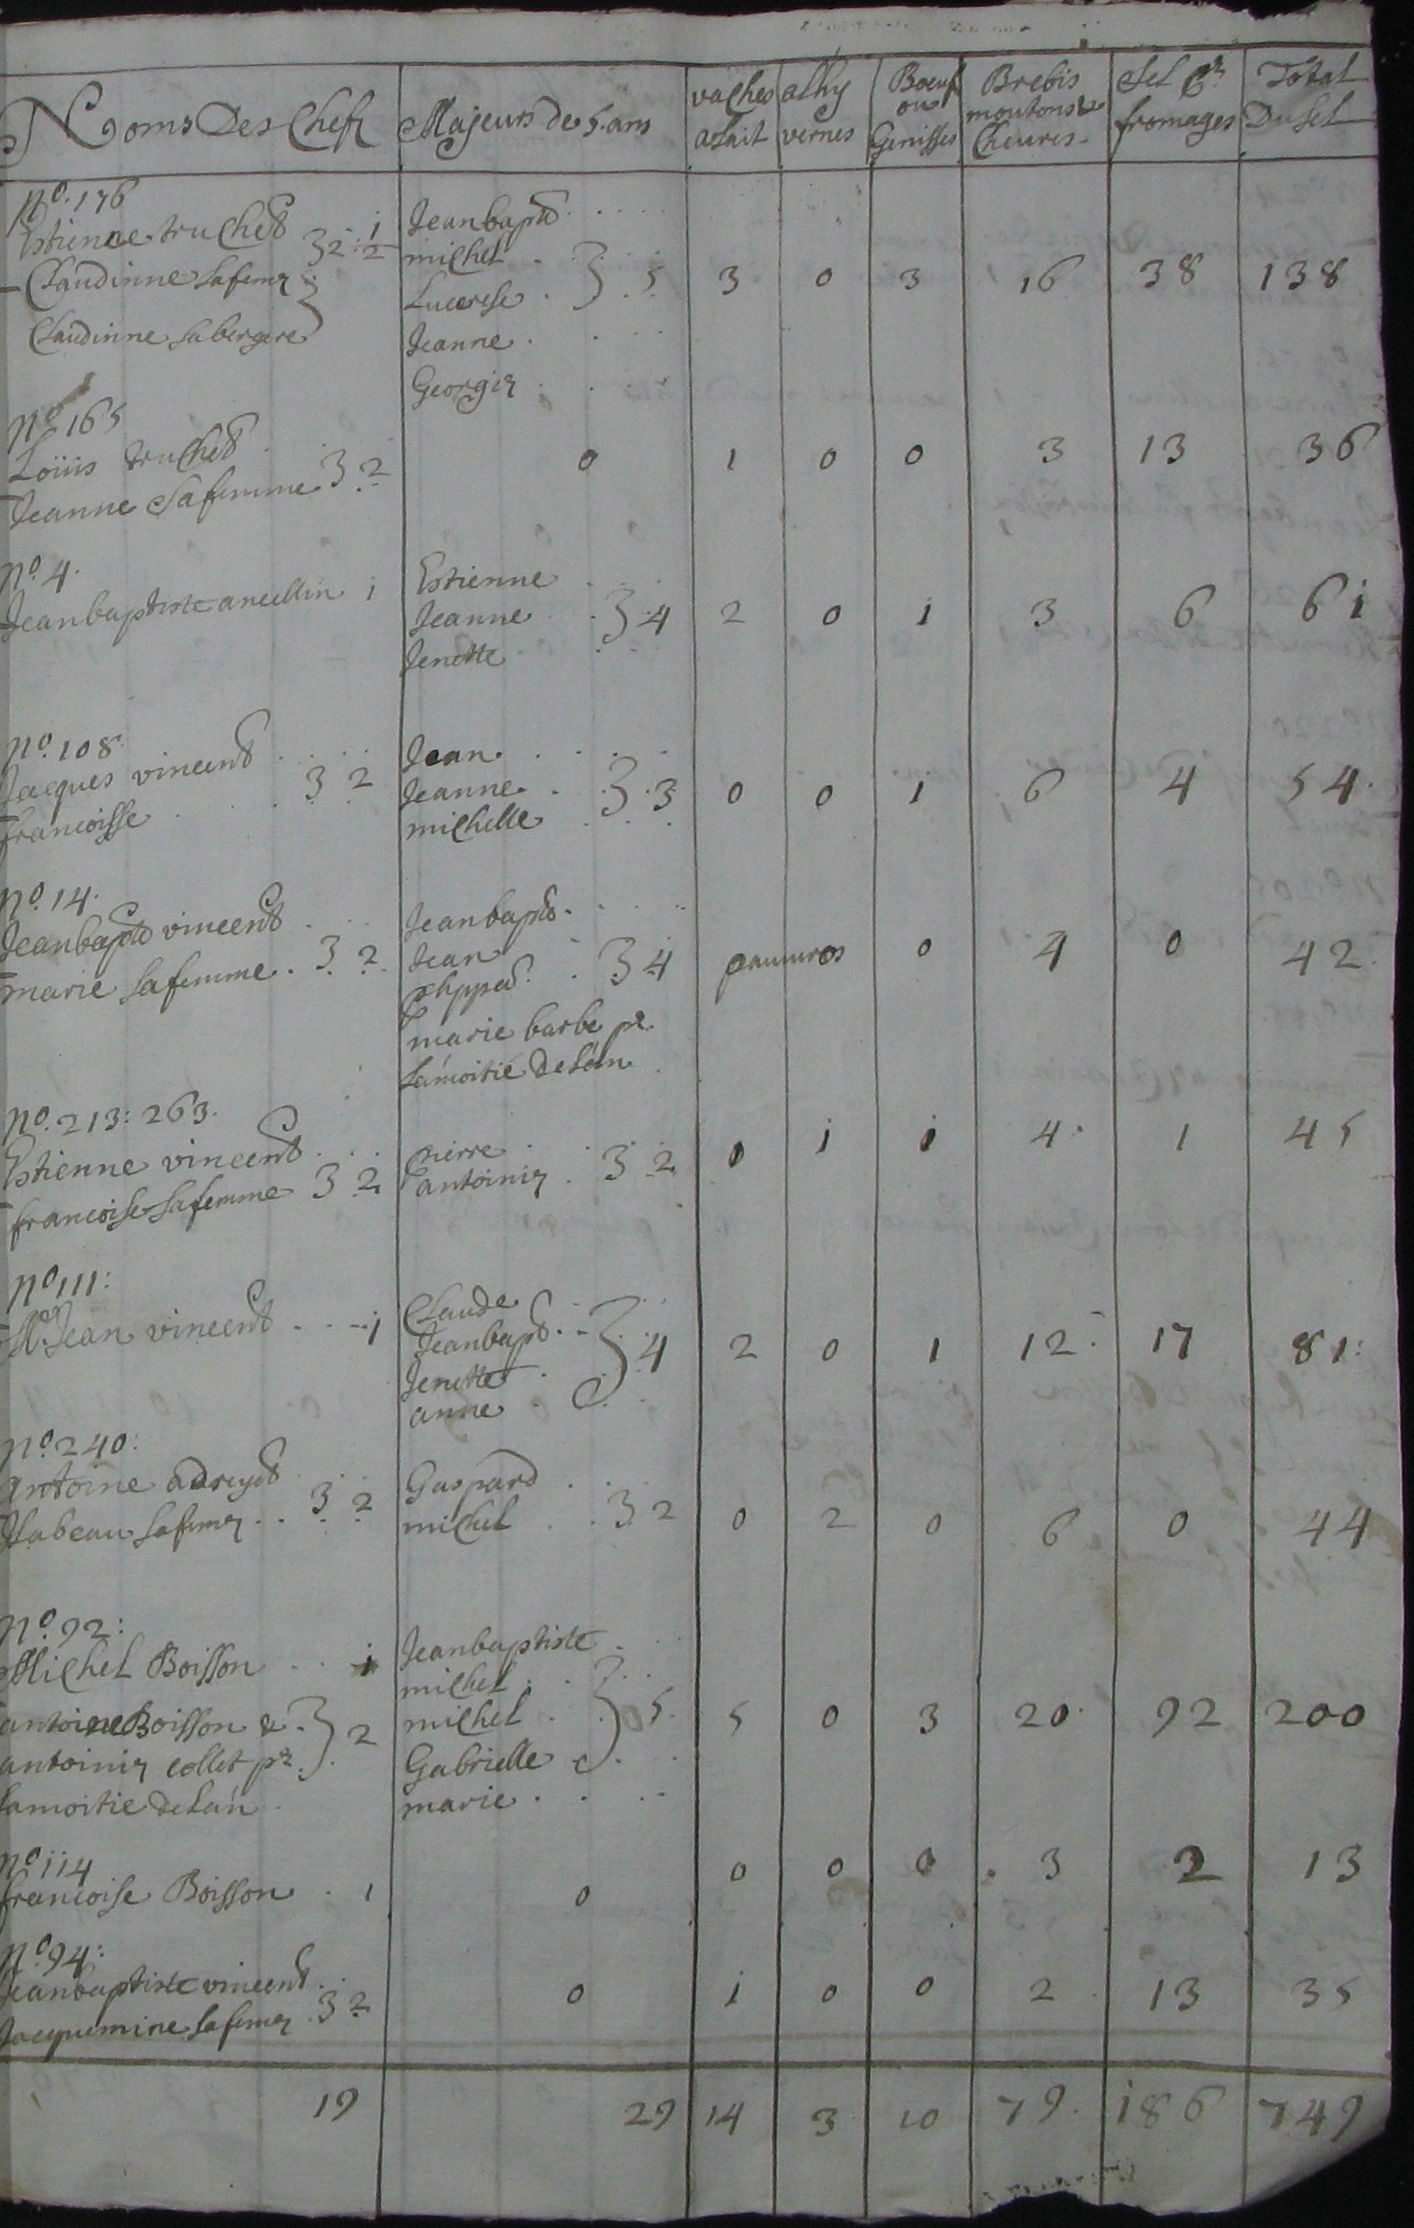 Noms Des Chefs | Majeurs de 5 ans | vaches alait | athy vernes | Boeufs ou Genisses | Brebis moutons & Cheures | Sel pr fromages | Total Du sel
No. 176
Estienne truchet 3 2 : 1/2 | Jean bapte
Claudinne sa feme | michel
Claudinne la bergere | Lucresse } 5 | 3 | 0 | 3 | 16 | 38 | 138
Jeanne
Georgie
No. 165
Loüis truchet
Jeanne sa femme } 2 | 0 | 1 | 0 | 0 | 3 | 13 | 36
No. 4.
Jean baptiste ancellin 1 | Estienne
Jeanne } 4 | 2 | 0 | 1 | 3 | 6 | 61
Jenette
No. 108
Jacques vincent | Jean
francoisse } 2 | Jeanne } 3 | 0 | 0 | 1 | 6 | 4 | 54
michelle
No. 14.
Jean bapte vincent | Jean bapte
marie sa femme } 2 | Jean } 4 | pauuros | 0 | 4 | 0 | 42
marie barbe pr
la moitie de l'an
No. 213: 263.
Estienne vincent | pierre
francoise sa femme } 2 | antoinie } 2 | 0 | 1 | 1 | 4 | 1 | 45
No 111:
Mr Jean vincent 1 | Claude
Jean bapt } 4 | 2 | 0 | 1 | 12 | 17 | 81:
Jenette
anne
No. 240:
antoine adreyt | Gaspard
Isabeau sa feme } 2 | michel } 2 | 0 | 2 | 0 | 6 | 0 | 44
No. 92:
Michel Boisson 1 | Jean baptiste
michel
antoine Boisson & | michel } 5 | 5 | 0 | 3 | 20 | 92 | 200
antoinie collet pr } 2 | Gabrielle
la moitie de l'an | marie
No 114
francoise Boisson 1 | 0 | 0 | 0 | 0 | 3 | 2 | 13
No. 94:
Jean baptiste vincent
Jacquemine sa feme } 2 | 0 | 1 | 0 | 0 | 2 | 13 | 35
19 | 29 | 14 | 3 | 10 | 79 | 186 | 749